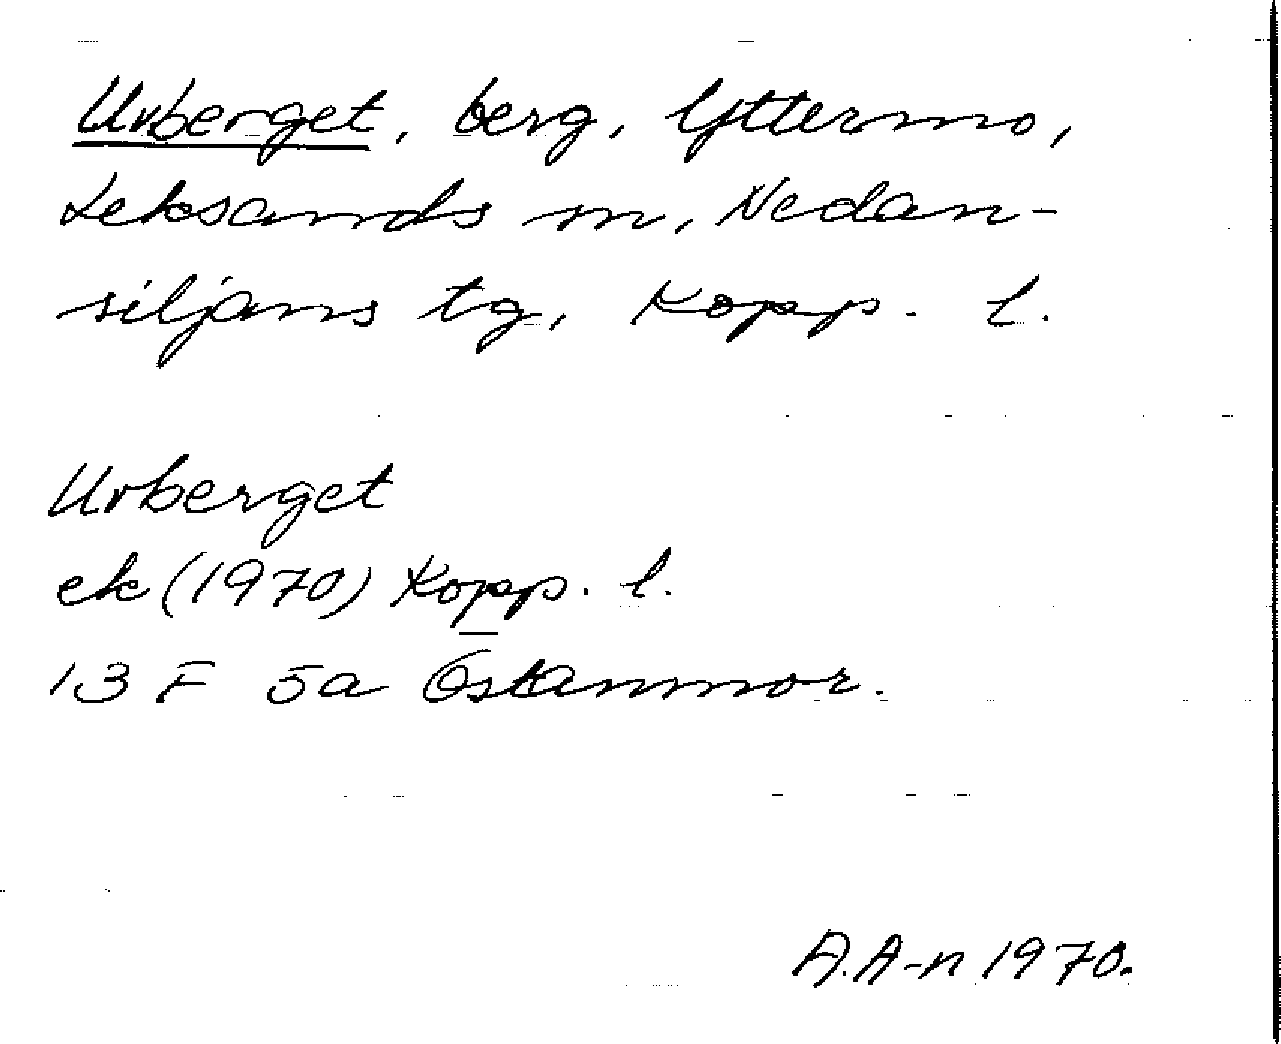 Urberget, berg, Yttermo,
Leksands sn, Nedan-
siljans tg, Kopp. l.
Urberget
ek (1970) Kopp. l.
13 F 5a Östanmor.
A.A-n 1970.